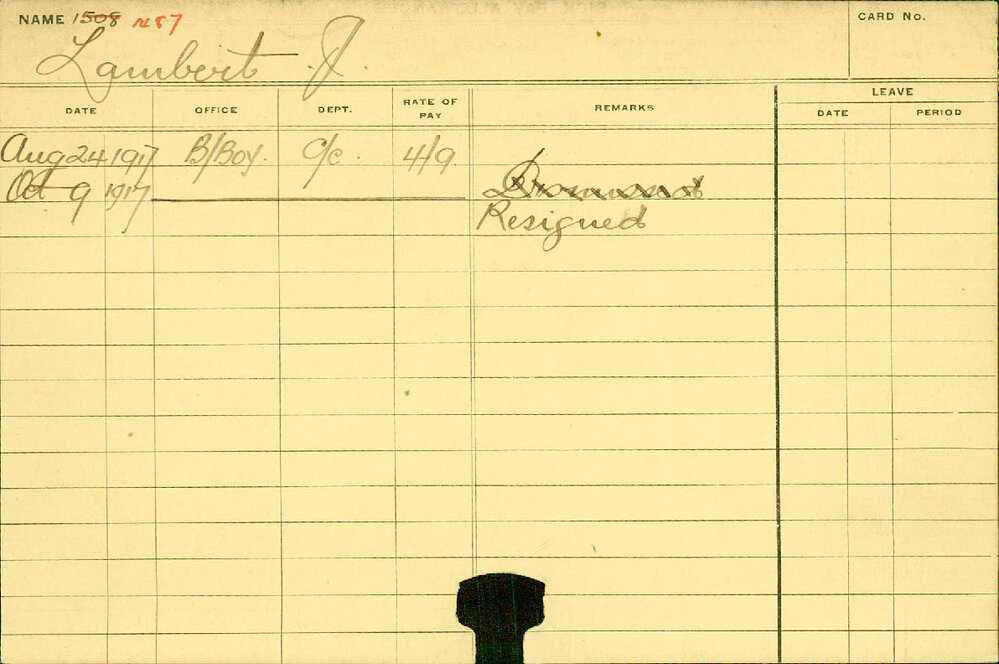 NAME 1508 1487
CARD No.
Lambert J.
DATE OFFICE DEPT. RATE OF PAY REMARKS LEAVE
DATE PERIOD
Aug 24 1917 B/Boy. C/c. 4/9.
Oct 9 1917 Dismissed
Resigned